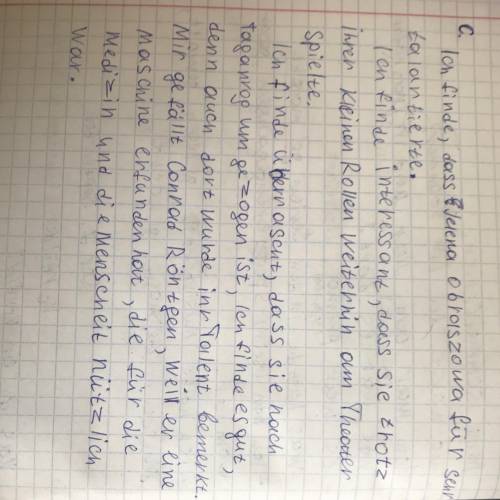 c. Ich finde, dass Elena obraszowa für sehr
talantierte.
Ich finde interessant, dass sie thotz
ihrer kleinen Rollen weiterhin am Theater
spielte.
Ich finde überrascht, dass sie nach
Taganrog umgezogen ist, Ich finde es gut,
denn auch dort wurde ihr Talent bemerkt.
Mir gefällt Conrad Röntgen, weil er eine
Maschine erfunden hat, die für die
Medizin und die Menscheit nützlich
war.